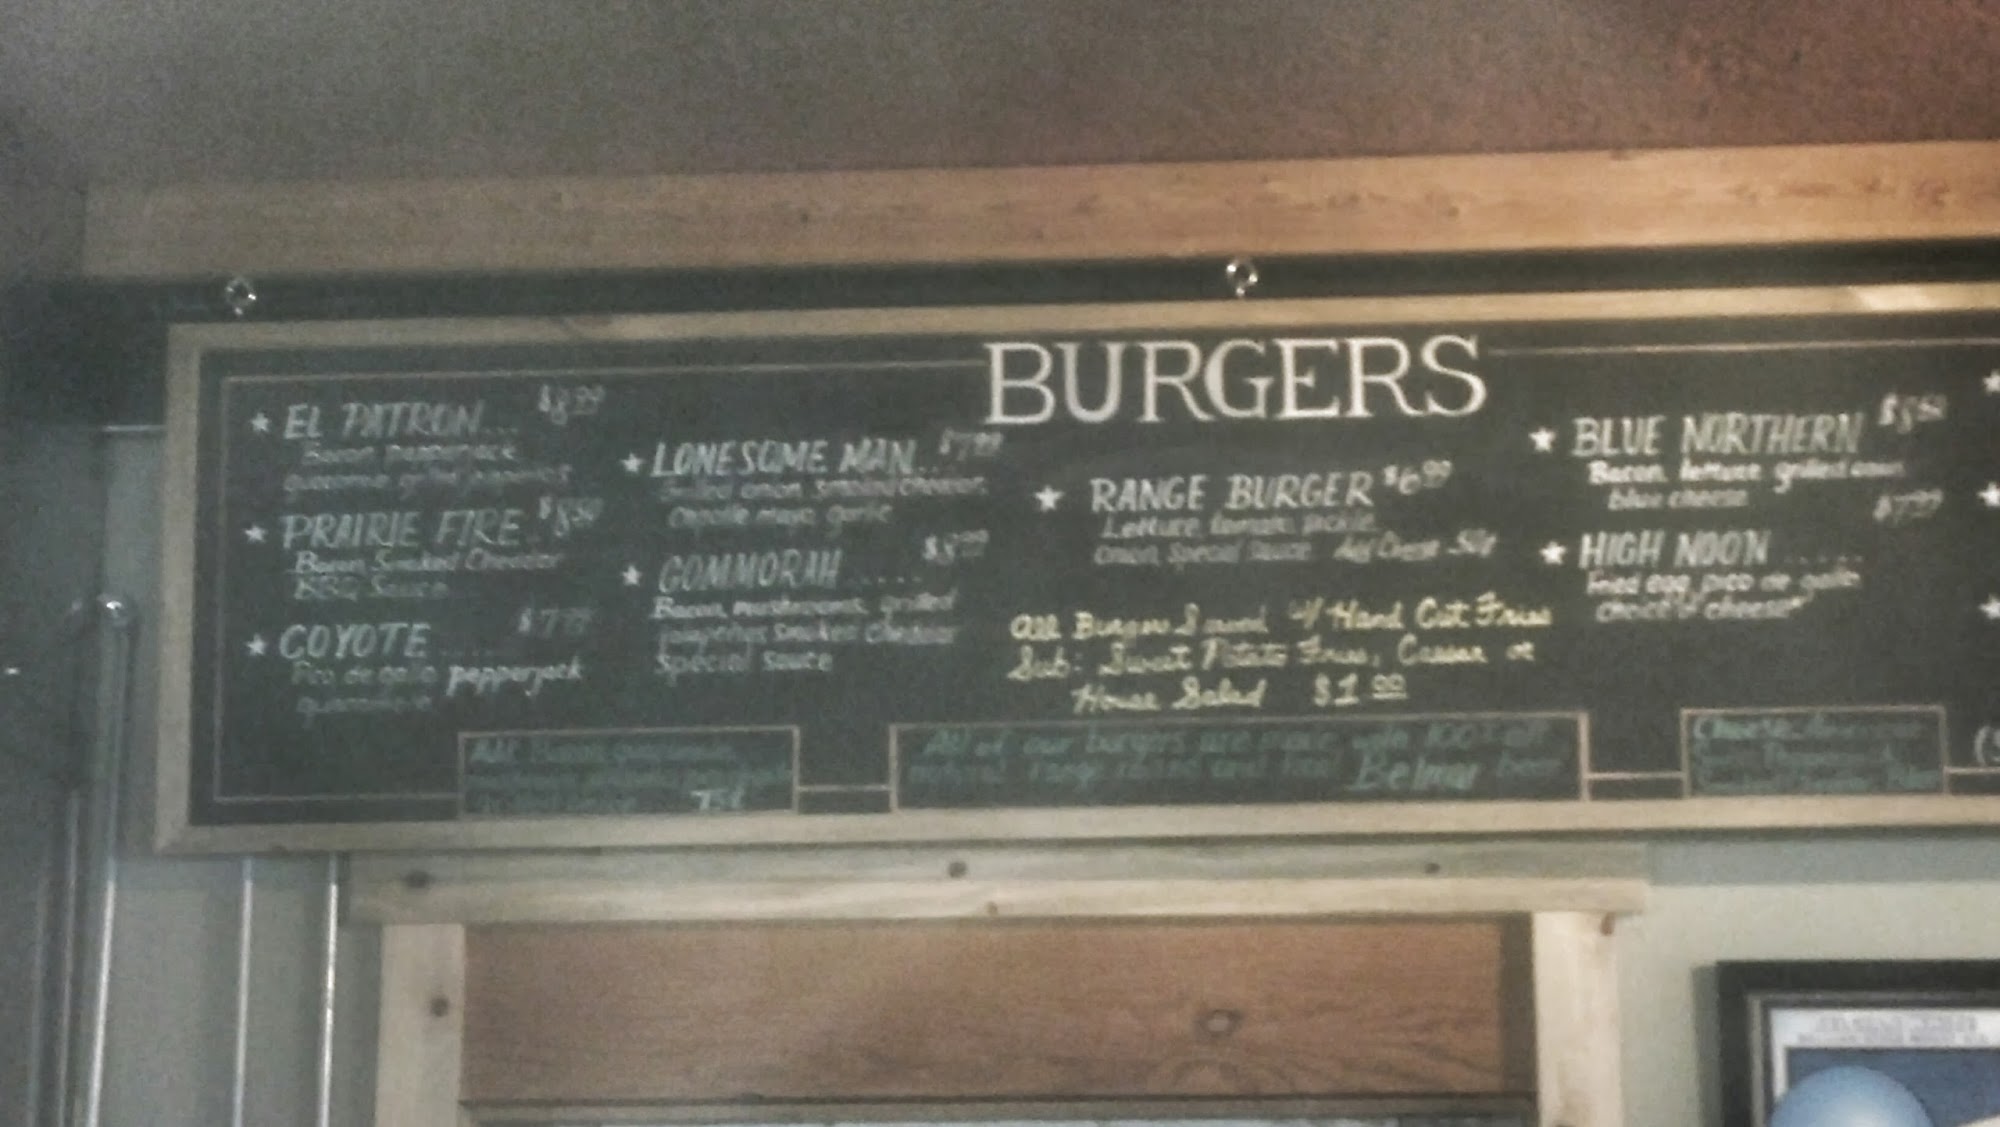 BURGERS
★ EL PATRON... $8.99
Bacon pepperjack
guacamole grilled jalapenos
★ PRAIRIE FIRE. $8.50
Bacon, Smoked Cheddar
BBQ Sauce
★ COYOTE ..... $7.99
Pico de gallo pepperjack
guacamole
★ LONESOME MAN... $7.99
Grilled onion, Smoked Cheddar,
Chipotle mayo, garlic
★ GOMMORAH ..... $8.99
Bacon, mushrooms, grilled
jalapeños Smoked Cheddar
Special Sauce
★ RANGE BURGER $6.99
Lettuce, tomato, pickle
onion, Special Sauce Add Cheese .50¢
All Burgers Served w/ Hand Cut Fries
Sub: Sweet Potato Fries, Caesar or
House Salad $1.00
★ BLUE NORTHERN $8.50
Bacon, lettuce, grilled onion
blue cheese
★ HIGH NOON ..... $7.99
Fried egg, pico de gallo
choice of cheese
Add Bacon, guacamole,
75¢
All of our burgers are made with 100%
natural range raised and Belmar beef
Cheese: American